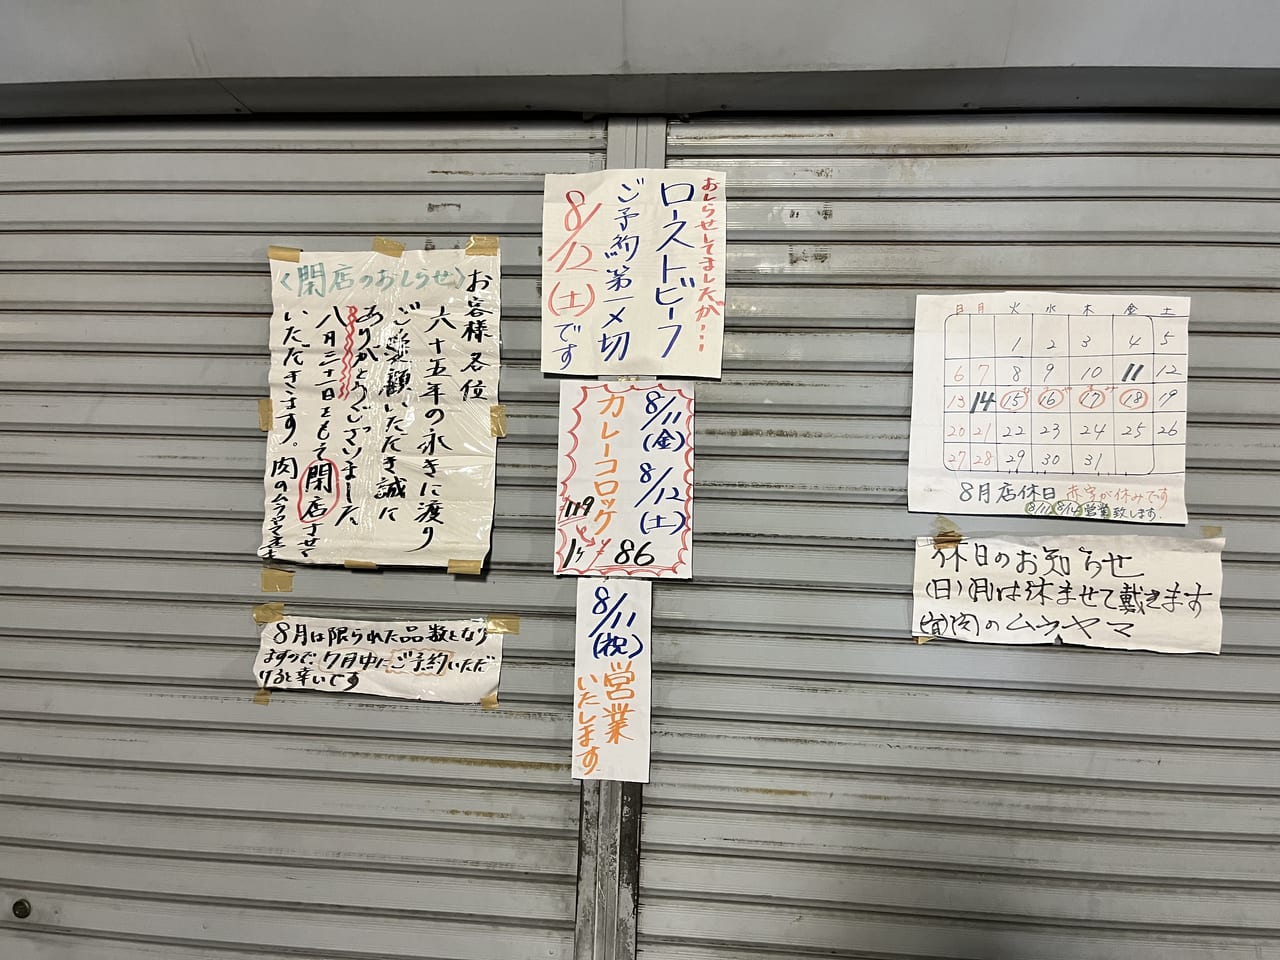 〈閉店のおしらせ〉
お客様各位
六十五年の永きに渡り
ご愛顧いただき誠に
ありがとうございました
八月三十一日をもって閉店させて
いただきます。肉のムラヤマ
8月は限られた品数となり
ますので、7月中にご予約いただ
けると幸いです
おしらせしてましたが…
ローストビーフ
ご予約第一〆切
8/12(土)です
8/11(金)8/12(土)
カレーコロッケ
119
1ヶ ¥86
8/11(祝)
営業
いたします
日 月 火 水 木 金 土
1 2 3 4 5
6 7 8 9 10 11 12
13 14 15 16 17 18 19
20 21 22 23 24 25 26
27 28 29 30 31
8月店休日 赤字が休みです
8/11 8/14 営業致します.
休日のお知らせ
(日)(月)は休ませて戴きます
(有)肉のムラヤマ